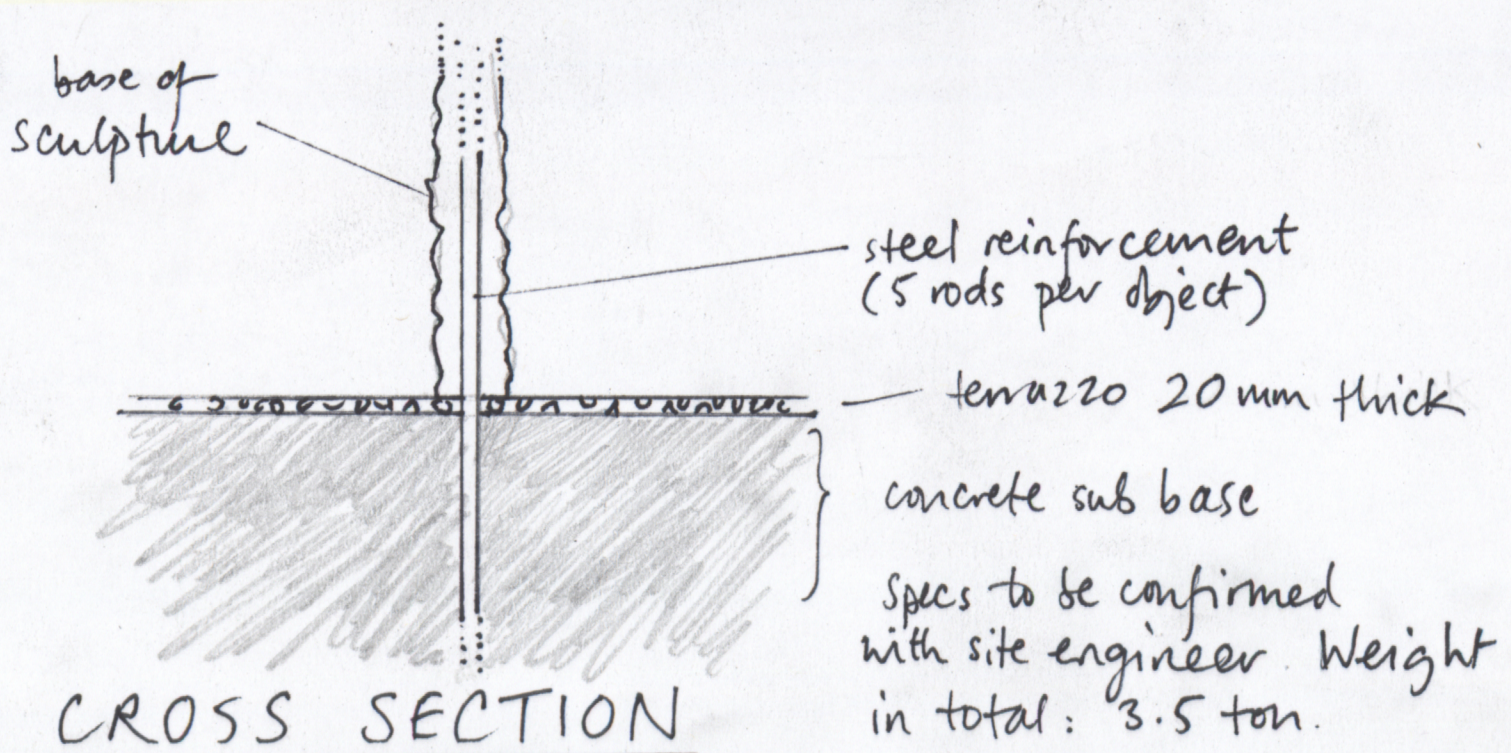 base of
sculpture
steel reinforcement
(5 rods per object)
terrazzo 20mm thick
concrete sub base
specs to be confirmed
with site engineer. Weight
in total: 3.5 ton.
CROSS SECTION